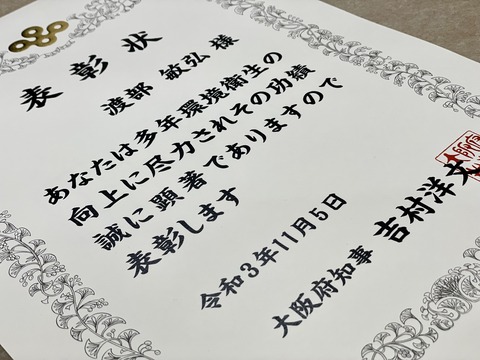 表彰状
渡部 敏弘 様
あなたは多年環境衛生の
向上に尽力されその功績
誠に顕著でありますので
表彰します
令和3年11月5日
大阪府知事 吉村洋文